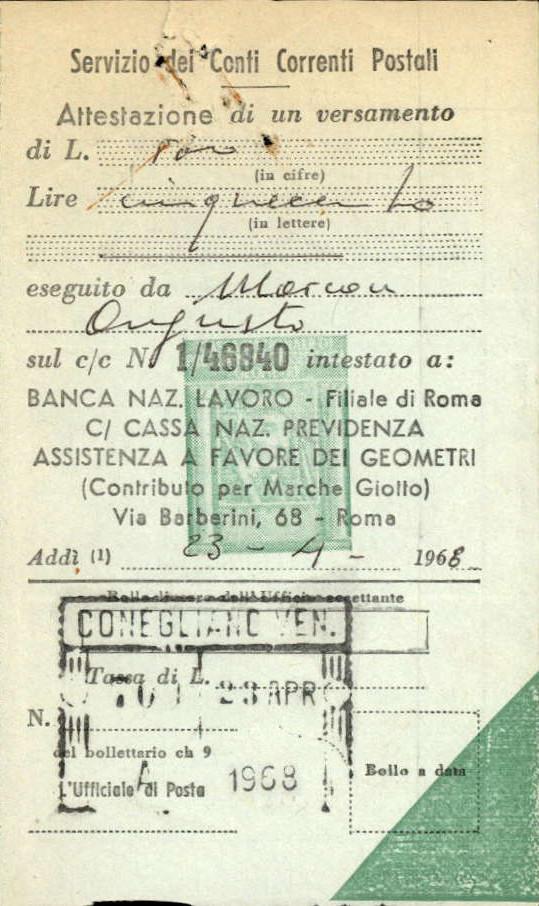 Servizio dei Conti Correnti Postali
Attestazione di un versamento
di L. 500
(in cifre)
Lire cinquecento
(in lettere)
eseguito da Marcon
Augusto
sul c/c N. 1/46840 intestato a:
BANCA NAZ. LAVORO - Filiale di Roma
C/ CASSA NAZ. PREVIDENZA
ASSISTENZA A FAVORE DEI GEOMETRI
(Contributo per Marche Giotto)
Via Barberini, 68 - Roma
Addì (1) 23 - 4 - 1968
Bollo lineare dell'Ufficio accettante
CONEGLIANO VEN.
Tassa di L.
23 APR
N.
del bollettario ch 9
Bollo a data
L'Ufficiale di Posta
1968